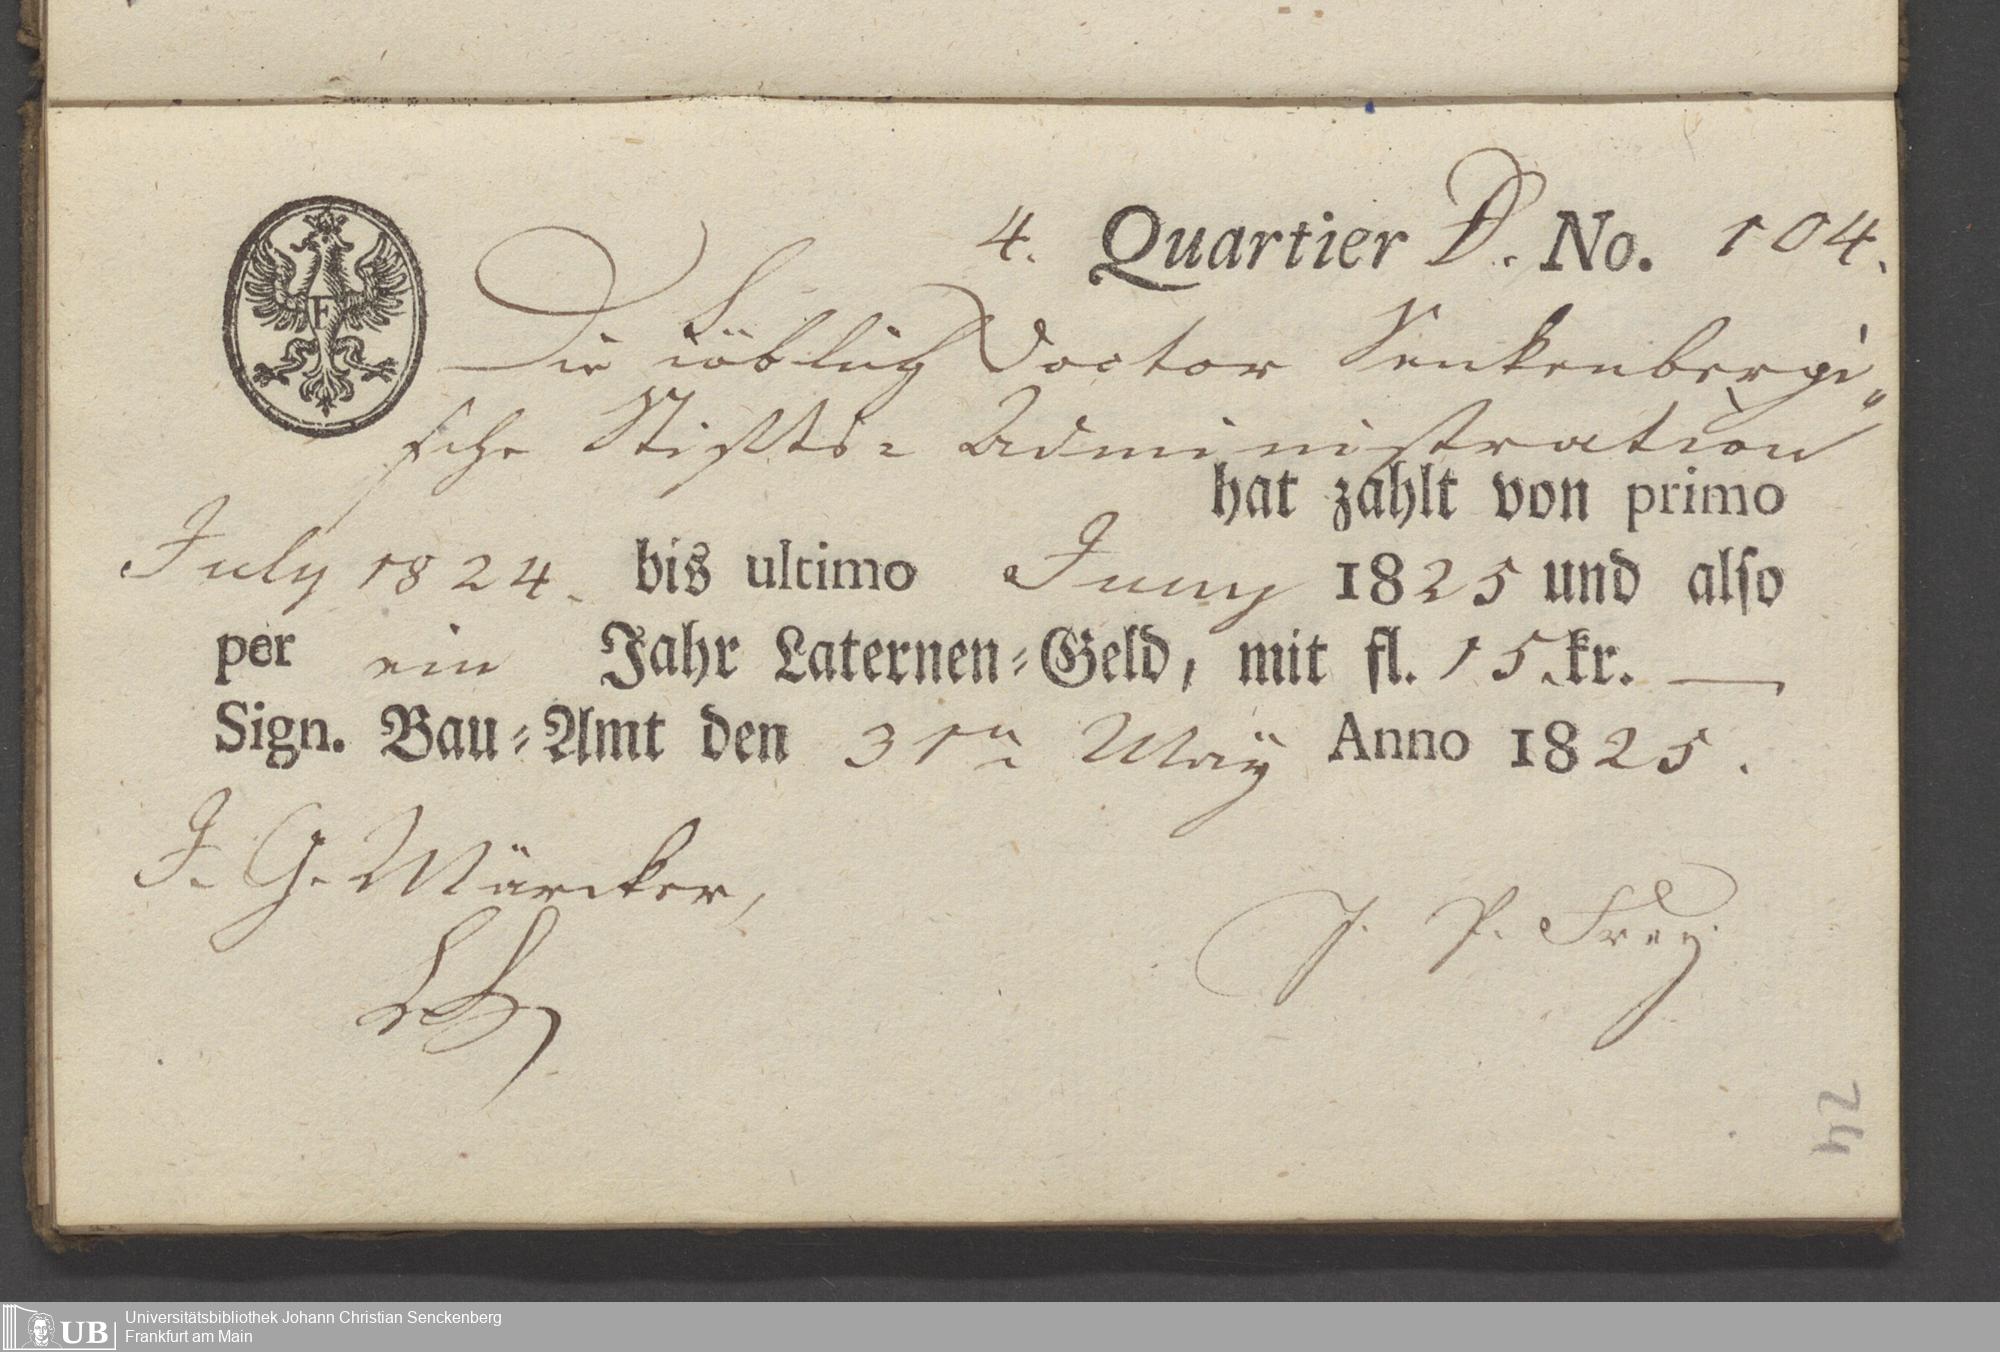 4. Quartier D. No. 104.
F
Die löblich Doctor Senkenbergi„
sche Stifts- Administration
hat zahlt von primo
July 1824. bis ultimo Juny 1825 und also
per ein Jahr Laternen-Geld, mit fl. 15. kr. —
Sign. Bau-Amt den 31n May Anno 1825.
J. G. Märcker,
J. P. Frey.
24
UB
Universitätsbibliothek Johann Christian Senckenberg
Frankfurt am Main